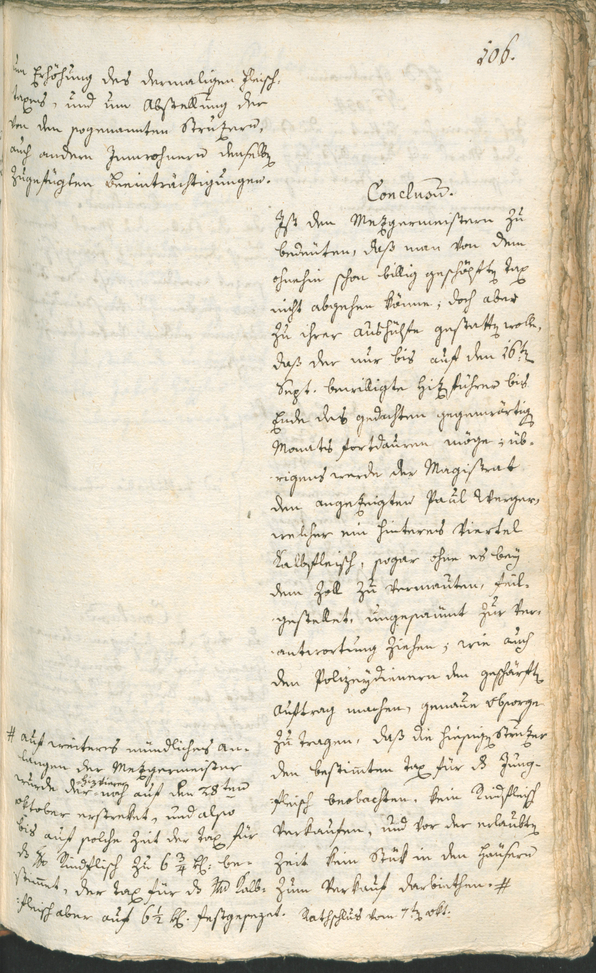 106.
um Erhöhung des dermaligen Fleisch-
taxens, und um Abstellung der
von den sogenannten Strützern,
auch andern Innwohnern denselbẽ
zugefügten Beeinträchtigungen.
Conclusũ.
Ist den Metzgermeistern zu
bedeuten, daß man von dem
ohnehin schon billig geschöpftẽ Tax
nicht abgehen könne; doch aber
zu ihrer Aushülfe gestattẽ wolle,
daß der nur bis auf den 16tẽ
Sept. bewilligte bis
Ende des gedachten gegenwärtigẽ
Monats fortdauren möge; üb-
rigens werde der Magistrat
den angezeigten Paul Werger,
welcher ein hinteres Viertel
Kalbfleisch, sogar ohne es bey
dem Zoll zu vermauten, feil-
gestellet, ungesaumt zur Ver-
antwortung ziehen; wie auch
den Polizeydienern den geschärftẽ
Auftrag machen, genaue Obsorge
zu tragen, daß die hiesigẽ Strützer
den bestim̃ten Tax für ds Jung-
fleisch beobachten, kein Rindfleisch
verkaufen, und vor der erlaubtẽ
Zeit kein Stük in den Häusern
zum Verkauf darbiethen. #
# auf weiteres mündliches An-
langen der Metzgermeister
wurde der noch auf den 28ten
Oktober erstreket, und also
bis auf solche Zeit der Tax für
ds Rindflisch zu 6 3/4 kr. be-
stim̃et, der Tax für ds Kalb-
fleisch aber auf 6 1/2 kr. festgesezet. Rathschlus vom 7tẽ Okt: